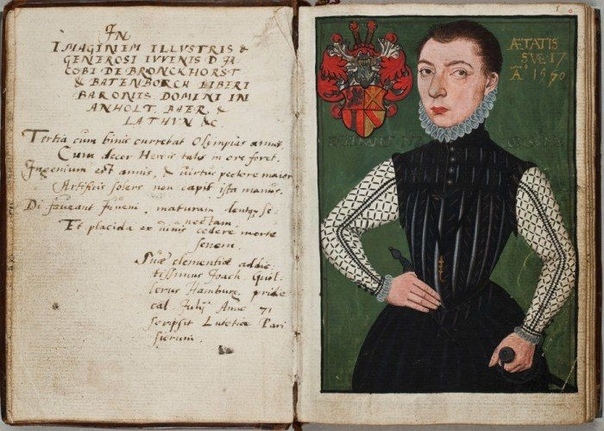 IN
IMAGINEM ILLUSTRIS &
GENEROSI IUVENIS D. IA
COBI DE BRONCKHORST
& BATENBORCH LIBERI
BARONIS DOMINI IN
ANHOLT. BAER. &
LATHUN &c.
Tertia cum binis curretas Olympias annis.
Cum decor Herois talis in ore foret.
Ingenium est annis, & virtus pectore maior
Artificis solers non capit ista manus.
Di faveant iuveni, maturam
nectam.
Et placida cedere morte
senem.
Suae clementiae addic
tissimus Joach.
Hamburg. pridie
cal. Julij Anno 71
scripsit Lutetiae Pari
siorum.
ÆTATIS
SVE 17
Aº 1570